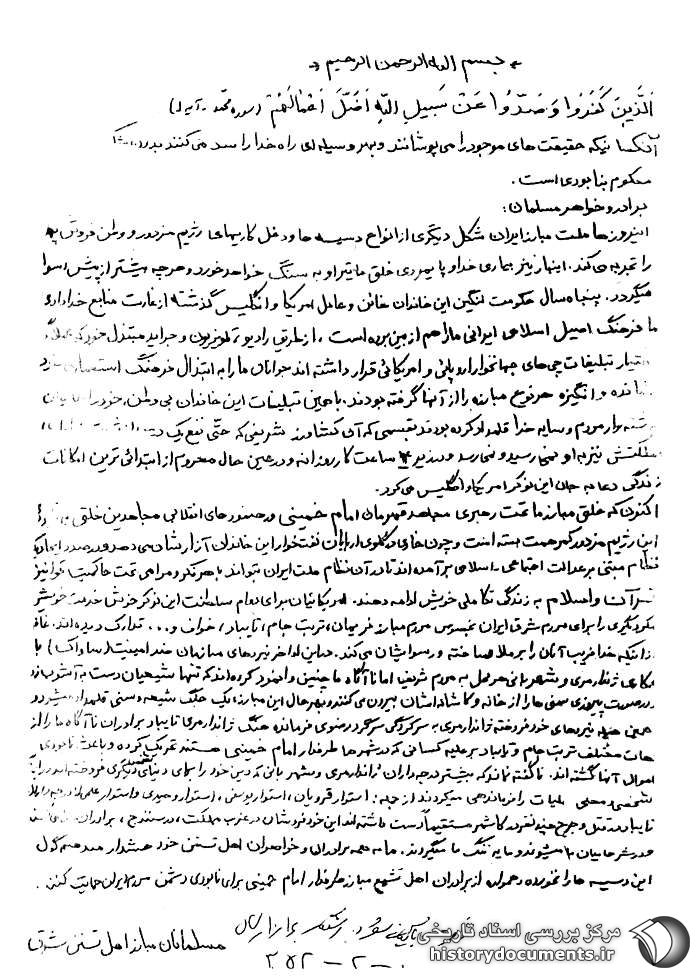 بسم الله الرحمن الرحیم
الَّذِینَ کَفَرُوا وَصَدُّوا عَنْ سَبِیلِ اللهِ اَضَلَّ اَعْمالَهُمْ (سوره محمد - آیه ۱)
آنکسانیکه حقیقت های موجود را می پوشانند و بهر وسیله ای راه خدا را سد می کنند
محکوم بنابودی است.
برادر و خواهر مسلمان:
امروزها ملت مبارز ایران شکل دیگری از انواع دسیسه ها و دغل کاریهای رژیم مزدور و وطن فروش
را تجربه می کند. اینبار نیز بیاری خدا و پایمردی خلق ما تیر او به سنگ خواهد خورد و هرچه بیشتر از پیش رسوا
میگردد. پنجاه سال حکومت ننگین این خاندان خائن و عامل امریکا و انگلیس گذشته از غارت منابع خدادادی
ما فرهنگ اصیل اسلامی ایرانی ما را هم از بین برده است، از طریق رادیو، تلویزیون و جراید مبتذل خود که
اختیار تبلیغات چی های جهانخوار اروپائی و امریکائی قرار داشته اند جوانان ما را به ابتذال فرهنگ استعماری
و انگیزه هر نوع مبارزه را از آنها گرفته بودند. با همین تبلیغات این خاندان بی وطن، خود را
مردم و سایه خدا قلمداد کرده بودند بقسمی که آن کشاورز شریفی که حتی نفع یک
مملکتش نیز به او نمیرسید و نمی رسد و در زیر ساعت کار روزانه و در عین حال محروم از ابتدائی ترین امکانات
زندگی دعا به جان این نوکر امریکا و انگلیس می کرد.
اکنون که خلق مبارز ما تحت رهبری مجاهد قهرمان امام خمینی و رهنمودهای انقلابی مجاهدین خلقی
این رژیم مزدور کمر همت بسته است و چون خاری در گلوی اربابان نفتخوار این خاندان آزارشان می دهد و در صدد ایجاد یک
نظام مبتنی بر عدالت اجتماعی - اسلامی برآمده اند تا در آن نظام ملت ایران بتواند با هر فکر و مرامی تحت حاکمیت
قرآن و اسلام به زندگی تکاملی خویش ادامه دهند. امریکائیان برای دوام سلطنت این نوکر
را برای مردم شرق ایران بخصوص مردم مبارز فریمان، تربت جام، تایباد، خواف و... تدارک دیده اند.
از اینکه خدا فریب آنان را برملا ساخته و رسوایشان می کند. در این اواخر نیروهای سازمان ضد امنیت (ساواک) با
همکاری ژاندارمری و شهربانی هر محل به مردم شریف اما ناآگاه ما چنین وانمود کرده اند که تنها شیعیان دست به آشوب زده
و در صورت پیروزی سنی ها را از خانه و کاشانه شان بیرون می کنند و بهر حال این مبارزه یک جنگ شیعه و سنی قلمداد میشود و
همین نیروهای خود فروخته ژاندارمری به سرکردگی سرگرد رضوی فرمانده هنگ ژاندارمری تایباد برادران ناآگاه ما را از
دهات مختلف تربت جام و تایباد بر علیه کسانی که در شهرها طرفدار امام خمینی هستند تحریک کرده و باعث نابودی
اموال آنها گشته اند. ناگفته نماند که بیشتر درجه داران ژاندارمری و شهربانی که دین خود را بهای دنیای دیگری فروخته اند
شخصی و محلی عملیات را فرماندهی میکردند از جمله: استوار قربان، استوار یوسفی، استوار وحیدی و استوار علمی
تایباد در قتل و جرح چند نفر در کاشمر مستقیماً دست داشته اند این خود فروشان در غرب مملکت، در سنندج، برادران
می شوند و مایه ننگ ما میگردند. ما به همه برادران و خواهران اهل تسنن خود هشدار میدهیم گول
این دسیسه ها را نخورده و همراه از برادران اهل تشیع مبارز طرفدار امام خمینی برای نابودی دشمن مردم ایران حمایت کنند.
مسلمانان مبارز اهل تسنن شرق
مرکز بررسی اسناد تاریخی
historydocuments.ir